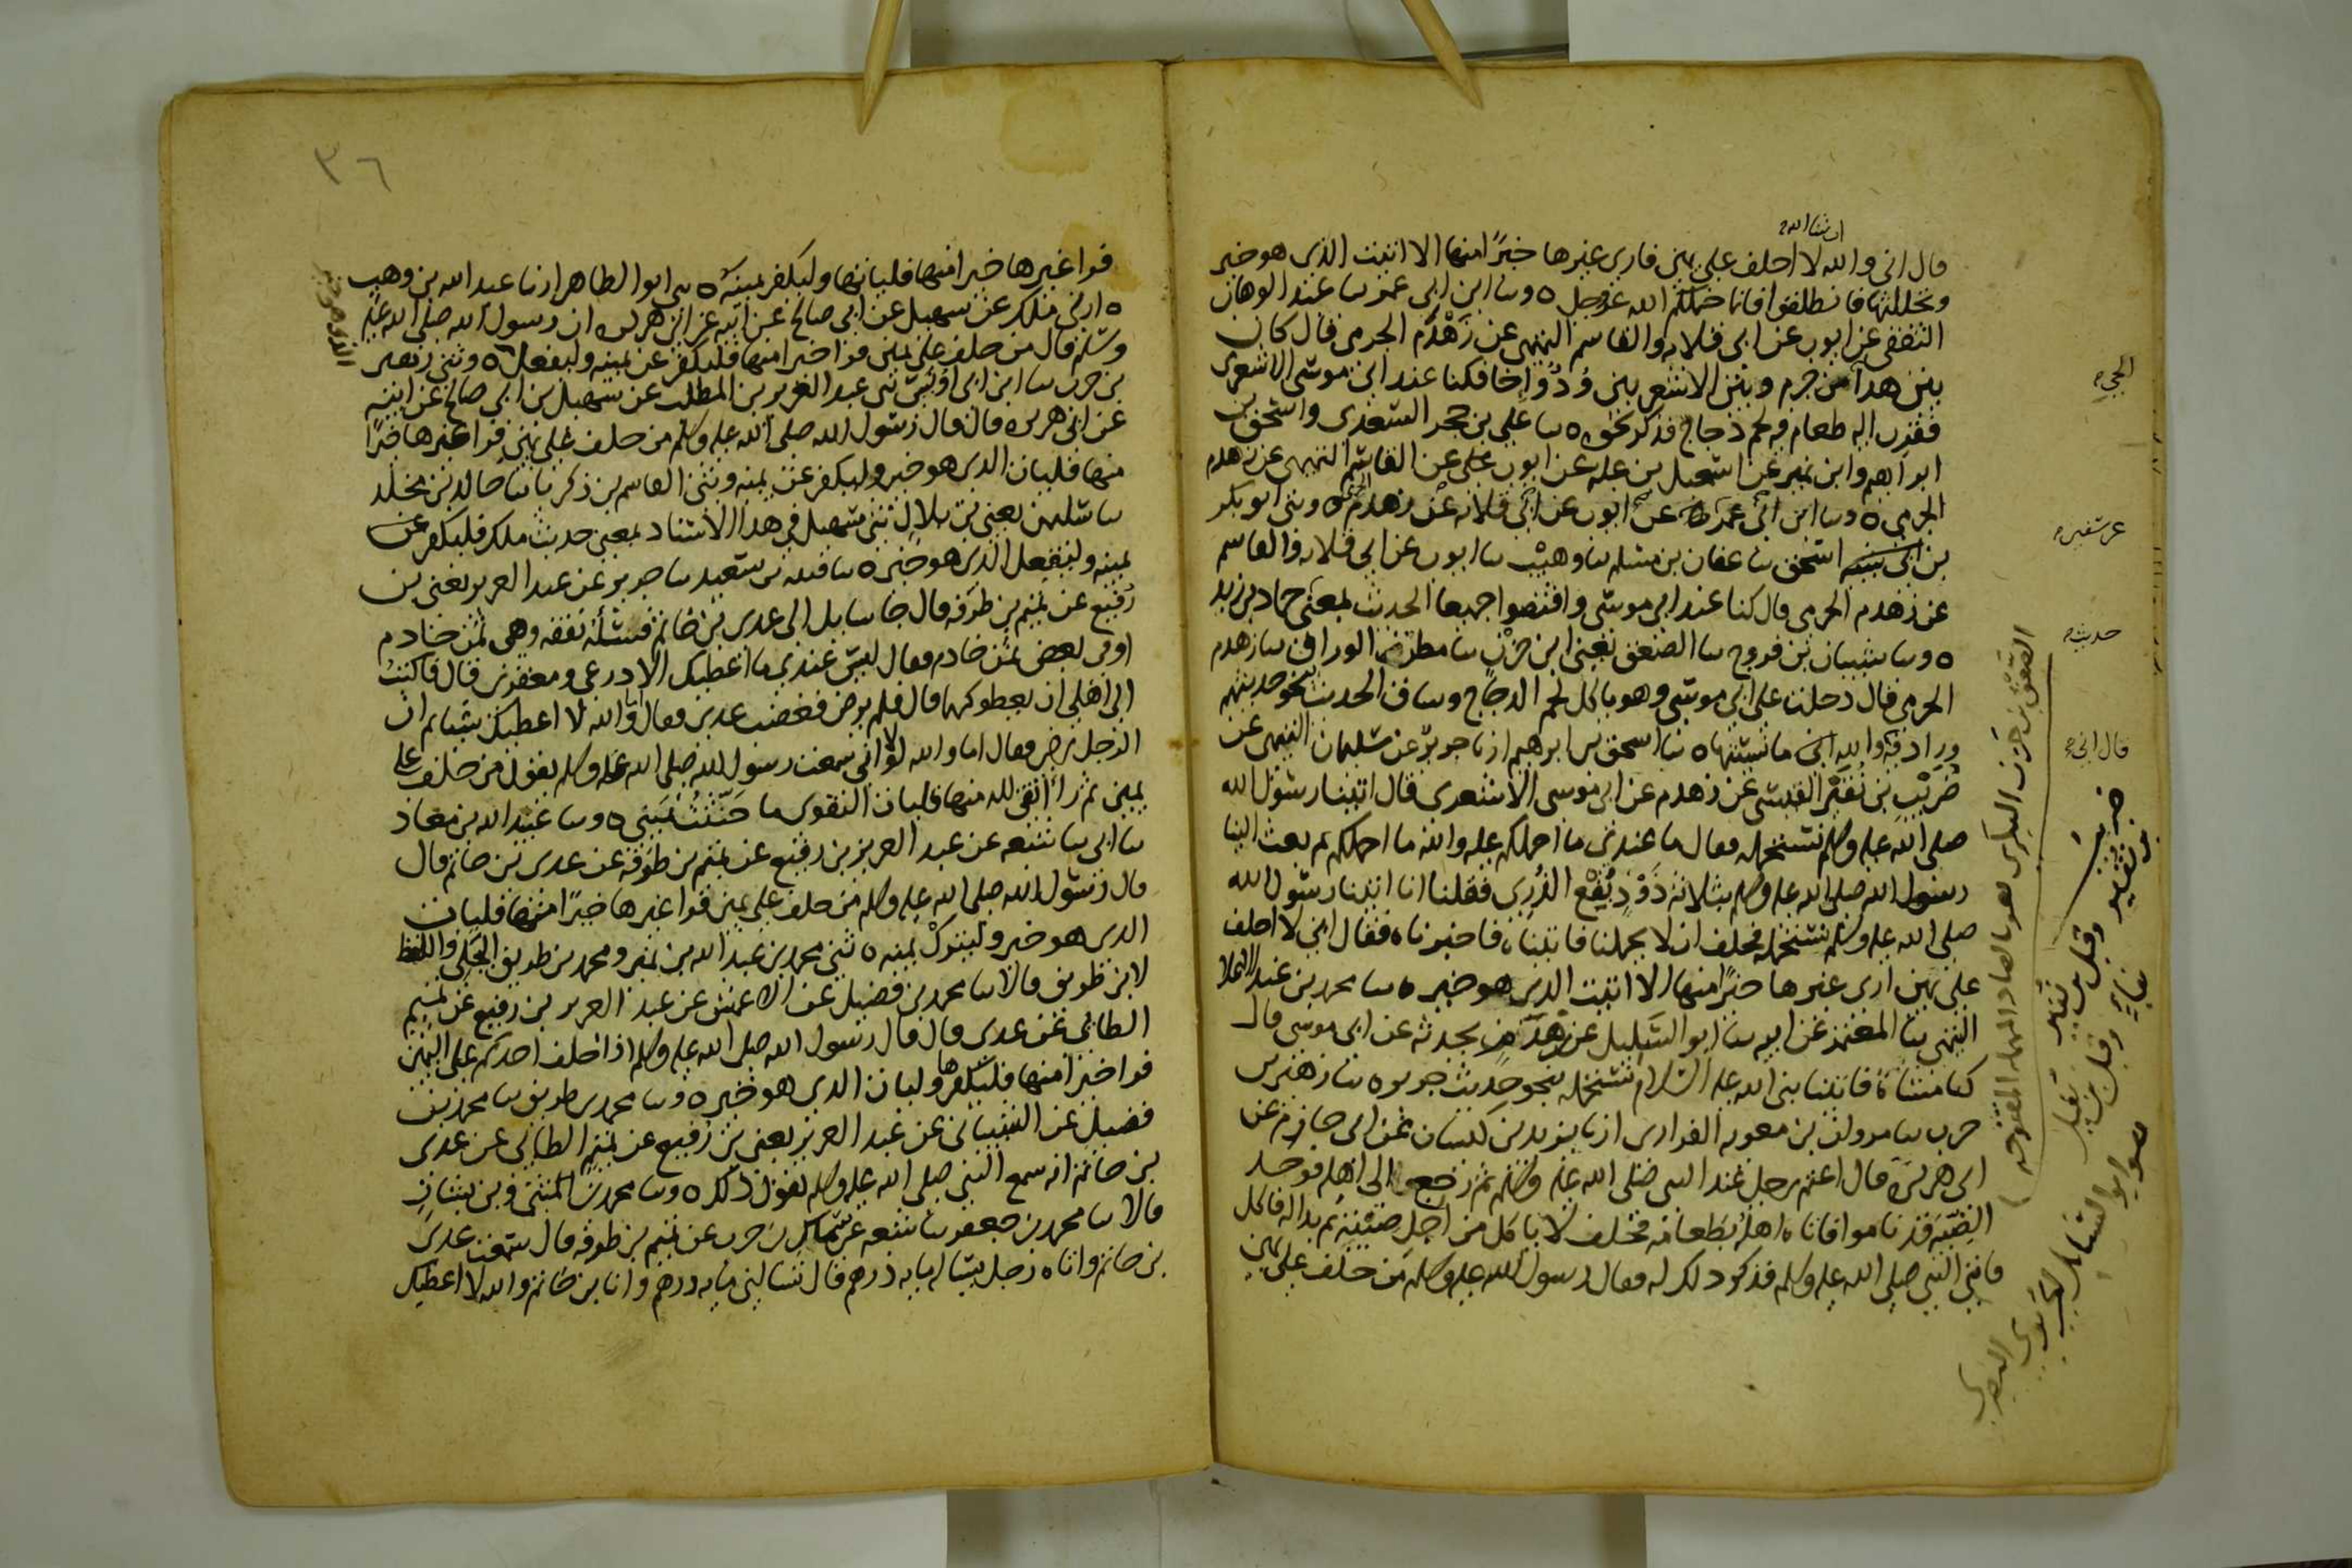 ان شا الله
قال انى والله لا احلف على يمين فارى غيرها خيرًا منها الا اتيت الذى هو خير
وتحللتها فانطلقوا فانما حملكم الله عز وجل ه وسا ابن ابى عمر سا عبد الوهاب
الثقفى عن ايوب عن ابى قلابه والقاسم التميمى عن زَهْدَم الجرمى قال كان
بين هدا من جرم وبين الاشعريين وُدٌّ وَإِخا فكنا عند ابى موسى الاشعرى
فقرب اليه طعام فيه لحم دجاج فذكر نحوه ه سا على بن حجر السعدى واسحق بن
ابراهيم وابن نمير عن اسمعيل بن عليه عن ايوب عن القاسم التميمى عن زهدم
الجرمى ه وسا ابن ابى عمر عن ايوب عن ابى قلابه عن زهدم الجرمى ه وثنى ابو بكر
بن اسحق سا عفان بن مسلم سا وهيب سا ايوب عن ابى قلابه والقاسم
عن زهدم الجرمى قال كنا عند ابى موسى واقتصوا جميعا الحديث بمعنى حماد بن زيد
ه وسا شيبان بن فروخ سا الصعق يعنى ابن حَزْنٍ سا مطر الوراق سا زهدم
الجرمى قال دخلت على ابى موسى وهو ياكل لحم الدجاج وساق الحديث بنحو حديثهم
وزاد فيه والله ما نسيتها ه سا اسحق بن ابرهيم ارنا جرير عن سليمان التيمى عن
ضُرَيْبِ بن نُفَيْر القيسى عن زهدم عن ابى موسى الاشعرى قال اتينا رسول الله
صلى الله عليه وسلم نستحمله فقال ما عندى ما احملكم عليه والله ما احملكم ثم بعث الينا
رسول الله صلى الله عليه وسلم بثلاثة ذَوْدٍ بُقْعِ الذُّرى فقلنا انا اتينا رسول الله
صلى الله عليه وسلم نستحمله فحلف ان لا يحملنا فاتيناه فاخبرناه فقال انى لا احلف
على يمين ارى غيرها خيرًا منها الا اتيت الذى هو خير ه سا محمد بن عبد الاعلا
التيمى سا المعتمر عن ابيه سا ابو السَّليل عن زَهْدَمٍ يحدثه عن ابى موسى قال
كنا مشاةً فاتينا نبى الله عليه السلام نستحمله بنحو حديث جرير ه سا زهير بن
حرب سا مروان بن معويه الفزارى ارنا يزيد بن كيسان عن ابى حازم عن
ابى هريرة قال اعتم رجل عند النبى صلى الله عليه وسلم ثم رجع الى اهله فوجد
الصِّبْيَه قد ناموا فاتاه اهله بطعامه فحلف لا ياكل من اجل صبيته ثم بدا له فاكل
فاتى النبى صلى الله عليه وسلم فذكر ذلك له فقال رسول الله صلى الله عليه وسلم من حلف على يمين
حديثه
الصَّعِق بن حَزن البكرى
بن نُفَير
٣٦
فرا غيرها خيرا منها فلياتها وليكفر يمينه ه ثنى ابو الطاهر ارنا عبد الله بن وهب
ه ارنى ملك عن سهيل عن ابى صالح عن ابيه عن ابى هريره ان رسول الله صلى الله عليه
وسلم قال من حلف على يمين فرا خيرا منها فليكفر عن يمينه وليفعل ه وثنى زهير
بن حرب سا ابن ابى اويس ثنى عبد العزيز بن المطلب عن سهيل بن ابى صالح عن ابيه
عن ابى هريره قال قال رسول الله صلى الله عليه وسلم من حلف على يمين فرا غيرها خيرًا
منها فليات الذى هو خير وليكفر عن يمينه وثنى القاسم بن زكريا سا خالد بن مخلد
سا سليمن يعنى بن بلال ثنى سهيل فى هذا الاسناد بمعنى حديث ملك فليكفر عن
يمينه وليفعل الذى هو خير ه سا قتيبه بن سعيد سا جرير عن عبد العزيز يعنى بن
رُفَيع عن تميم بن طَرَفه قال جا سايل الى عدى بن حاتم فسأله نفقه وهى ثمن خادم
او فى بعض ثمن خادم فقال ليس عندى ما اعطيك الا درعى ومغفرى قال فاكتبُ
الى اهلى ان يعطوكهما قال فلم يرض فغضب عدى فقال اما والله لا اعطيك شيا ثم ان
الرجل رضى فقال اما والله لولا انى سمعت رسول الله صلى الله عليه وسلم يقول من حلف على
يمين ثم راى اتقى لله منها فليات التقوى ما حَنَّثْتُ يَمينى ه وسا عبيد الله بن معاذ
سا ابى سا شعبه عن عبد العزيز بن رفيع عن تميم بن طَرَفه عن عدى بن حاتم قال
قال رسول الله صلى الله عليه وسلم من حلف على يمين فرا غيرها خيرًا منها فليات
الذى هو خير وليترك يمينه ه ثنى محمد بن عبد الله بن نمير ومحمد بن طريف البجلى واللفظ
لابن طريف قالا سا محمد بن فضيل عن الاعمش عن عبد العزيز بن رفيع عن تميم
الطائى عن عدى قال قال رسول الله صلى الله عليه وسلم اذا حلف احدكم على اليمين
فرا خيرا منها فليكفرها وليات الذى هو خير ه وسا محمد بن طريف سا محمد بن
فضيل عن الشيبانى عن عبد العزيز يعنى بن رفيع عن تميم الطائى عن عدى
بن حاتم انه سمع النبى صلى الله عليه وسلم يقول ذلك ه وسا محمد بن المثنى وبن بشار
قالا سا محمد بن جعفر سا شعبه عن سماك بن حرب عن تميم بن طرفه قال سمعت عدى
بن حاتم واتاه رجل يساله مايه درهم قال تسالنى مايه درهم وانا بن حاتم والله لا اعطيك